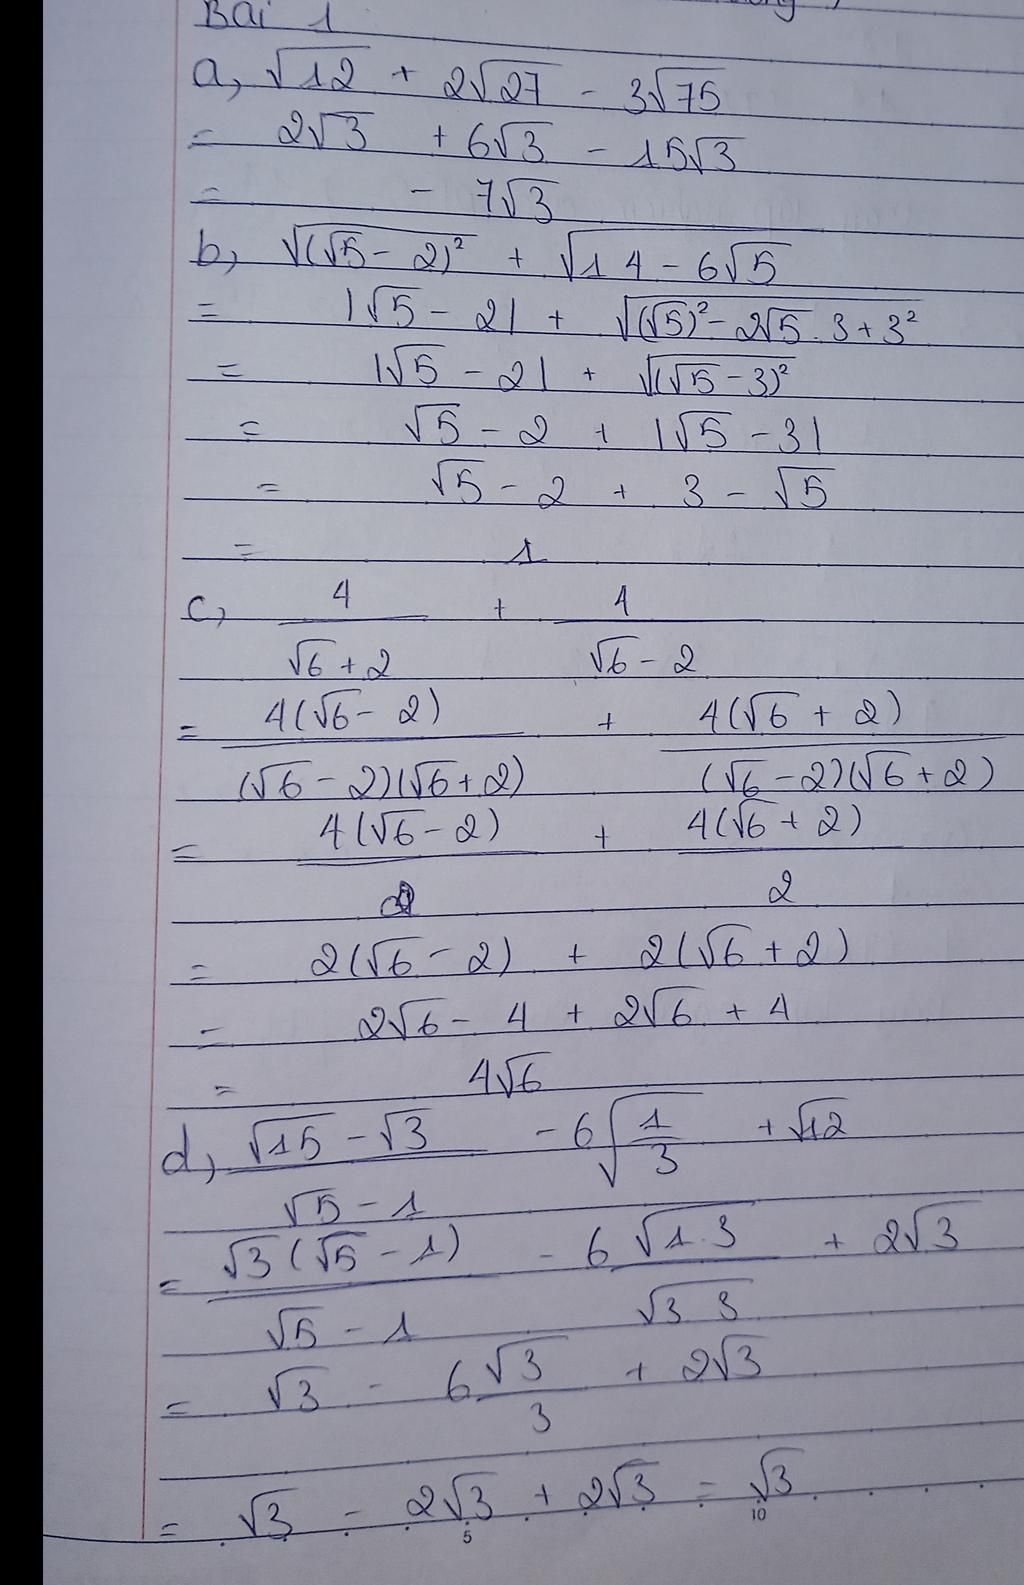 Bài 1
a, √12 + 2√27 - 3√75
= 2√3 + 6√3 - 15√3
= - 7√3
b, √(√5 - 2)² + √14 - 6√5
= |√5 - 2| + √(√5)² - 2√5 . 3 + 3²
= |√5 - 2| + √(√5 - 3)²
= √5 - 2 + |√5 - 3|
= √5 - 2 + 3 - √5
= 1
c, 4 + 4
√6 + 2 √6 - 2
= 4(√6 - 2) + 4(√6 + 2)
(√6 - 2)(√6 + 2) (√6 - 2)(√6 + 2)
= 4(√6 - 2) + 4(√6 + 2)
2 2
= 2(√6 - 2) + 2(√6 + 2)
= 2√6 - 4 + 2√6 + 4
= 4√6
d, √15 - √3 - 6√1/3 + √12
√5 - 1
= √3(√5 - 1) - 6 √1.3 + 2√3
√5 - 1 √3 3
= √3 - 6 √3 + 2√3
3
= √3 - 2√3 + 2√3 = √3
5 10